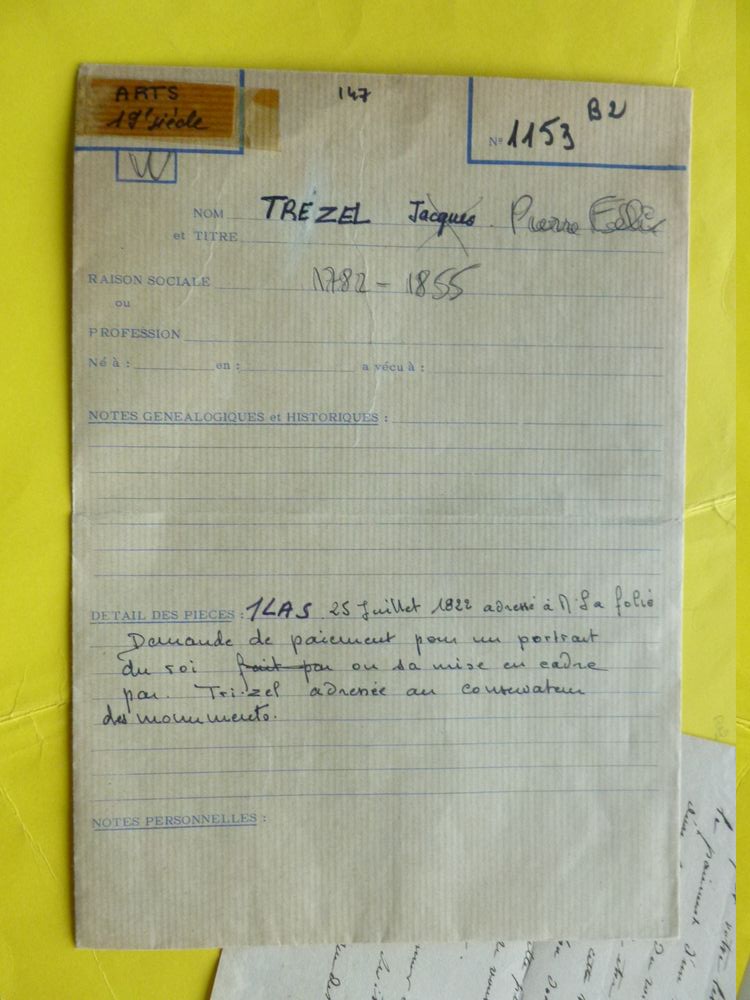 ARTS
19e siécle
147
B2
N° 1153
W
NOM TREZEL Jacques Pierre Félix
et TITRE
RAISON SOCIALE 1782 - 1855
ou
PROFESSION
Né à : en : a vécu à :
NOTES GENEALOGIQUES et HISTORIQUES :
DETAIL DES PIECES : 1LAS 25 Juillet 1822 adressé à M La folie
Demande de paiement pour un portrait
du roi fait par ou sa mise en cadre
par Trezel adressée au conservateur
des monuments.
NOTES PERSONNELLES :
le paiement d'un